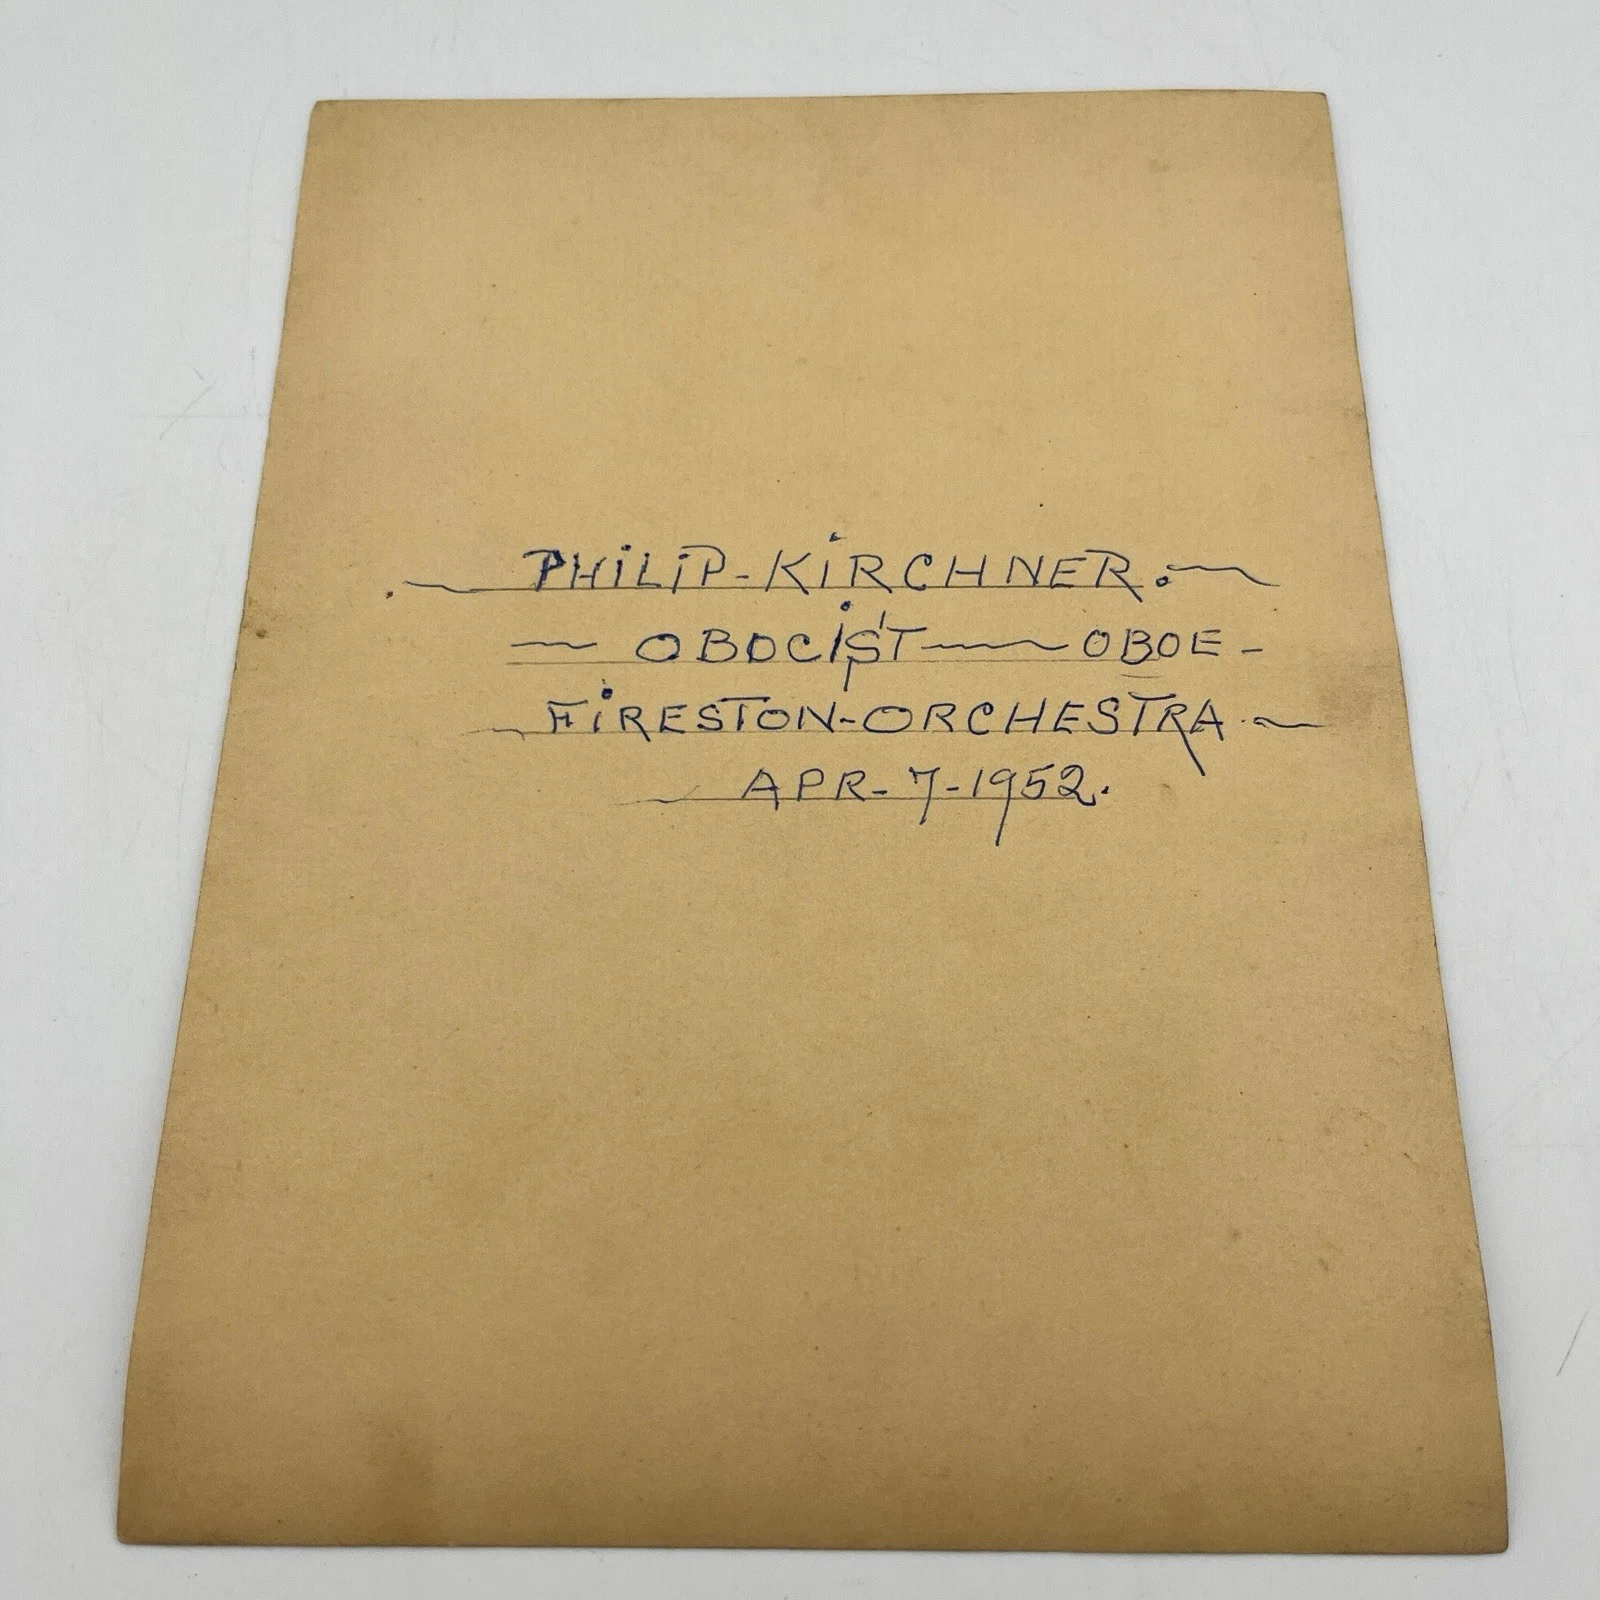 PHILIP-KIRCHNER.
OBOCIST OBOE-
FIRESTON-ORCHESTRA
APR-7-1952.